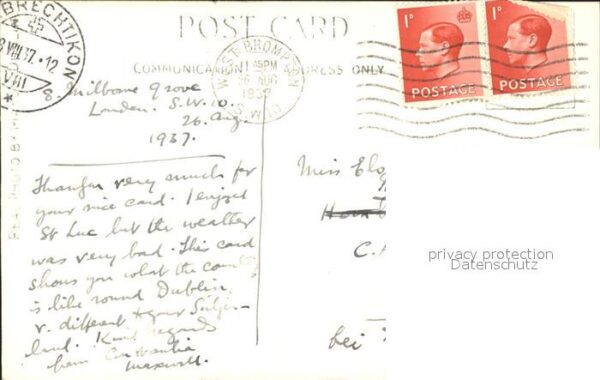 BRECHTIKON
VIII 37.12
VIII
POST CARD
COMMUNICATION
ADDRESS ONLY
WEST BROMPTON
1 45PM
26 AUG
1937
S.W.10
1D
POSTAGE
1D
POSTAGE
8. Milborne Grove
London. S.W.10.
26. Aug.
1937.
Thankyou very much for
your nice card. I enjoyed
St Luc but the weather
was very bad. This card
shows you what the country
is like round Dublin,
v. different to your
land. Kind regards
from Constantia
Maxwell.
Miss
C.
bei
privacy protection
Datenschutz